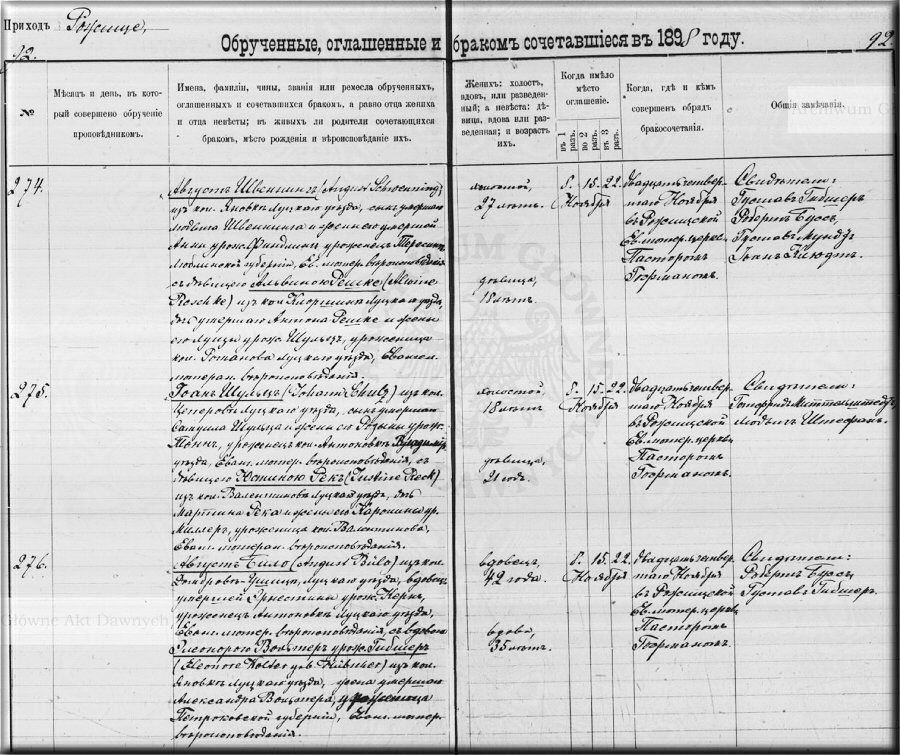 Приходъ Рожище,
92.
Обрученные, оглашенные и бракомъ сочетавшіеся въ 1898 году.
92.
№
Мѣсяцъ и день, въ кото-
рый совершено обрученіе
проповѣдникомъ.
Имена, фамиліи, чины, званія или ремесла обрученныхъ,
оглашенныхъ и сочетавшихся бракомъ, а равно отца жениха
и отца невѣсты; въ живыхъ ли родители сочетающихся
бракомъ, мѣсто рожденія и вѣроисповѣданіе ихъ.
Женихъ: холостъ,
вдовъ, или разведен-
ный; а невѣста: дѣ-
вица, вдова или раз-
веденная; и возрастъ
ихъ.
Когда имѣло
мѣсто
оглашеніе.
въ 1 разъ.
во 2 разъ.
въ 3 разъ.
Когда, гдѣ и кѣмъ
совершенъ обрядъ
бракосочетанія.
Общія замѣчанія.
Archiwum Gł
274.
Августъ Швеннингъ (August Schwenning)
изъ кол. Яновки Луцкаго уѣзда, сынъ умершаго
Швеннинга и жены его умершей
Анны урож. урожен​ецъ
Люблинской губерніи, Ев. лютер. вѣроисповѣданія
съ дѣвицею Альвиною Решке (Alvine
Reschke) изъ кол. Луцкаго уѣзда,
дочь умершаго Антона Решке и жены
его Луизы урож. Шульцъ, уроженица
кол. Романова Луцкаго уѣзда, Евангел.
лютеран. вѣроисповѣданія.
холостой,
27 лѣтъ.
дѣвица,
18 лѣтъ.
8. 15. 22.
Ноября
Двадцать четвер-
таго Ноября
въ Рожищской
Ев. лютер. церкви
Пасторомъ
Германомъ.
Свидѣтели:
Густавъ Гибнеръ
Робертъ Буссъ
Густавъ
Іоганъ
275.
Іоганъ Шульцъ (Johann Schulz) изъ кол.
Луцкаго уѣзда, сынъ умершаго
Самуила Шульца и жены его Розины урож.
уроженецъ кол. Антоновки Владимір.
уѣзда, Еван. лютер. вѣроисповѣданія, съ
дѣвицею Юстиною Рекъ (Justine Reck)
изъ кол. Валентинова Луцкаго уѣзда, дочь
Мартина Река и жены его Каролины ур.
Миллеръ, уроженица кол. Валентинова,
Еванг. лютеран. вѣроисповѣданія.
холостой,
18 лѣтъ
дѣвица,
21 годъ.
8. 15. 22.
Ноября
Двадцать четвер-
таго Ноября
въ Рожищской
Ев. лютер. церкви
Пасторомъ
Германомъ.
Свидѣтели:
Готфридъ
Людвигъ Штефанъ.
276.
Августъ Било (August Bülo) изъ кол.
Луцкаго уѣзда, вдовецъ
умершей Эрнестины урож. Кернъ,
уроженецъ Антоновки Луцкаго уѣзда,
Еванг. лютер. вѣроисповѣданія, съ вдовою
Элеонорою урож. Гибнеръ
(Eleonore geb. Hübner) изъ кол.
Яновки Луцкаго уѣзда, жена умершаго
Александра уроженица
Петроковской губерніи, Еванг. лютер.
вѣроисповѣданія.
вдовецъ,
42 года.
вдова,
35 лѣтъ.
8. 15. 22.
Ноября
Двадцать четвер-
таго Ноября
въ Рожищской
Ев. лютер. церкви
Пасторомъ
Германомъ.
Свидѣтели:
Робертъ Буссъ
Густавъ Гибнеръ.
Główne Akt Dawnych